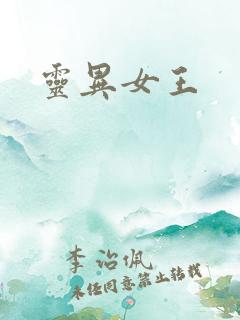 靈異女王
李治佩
未經同意禁止轉載